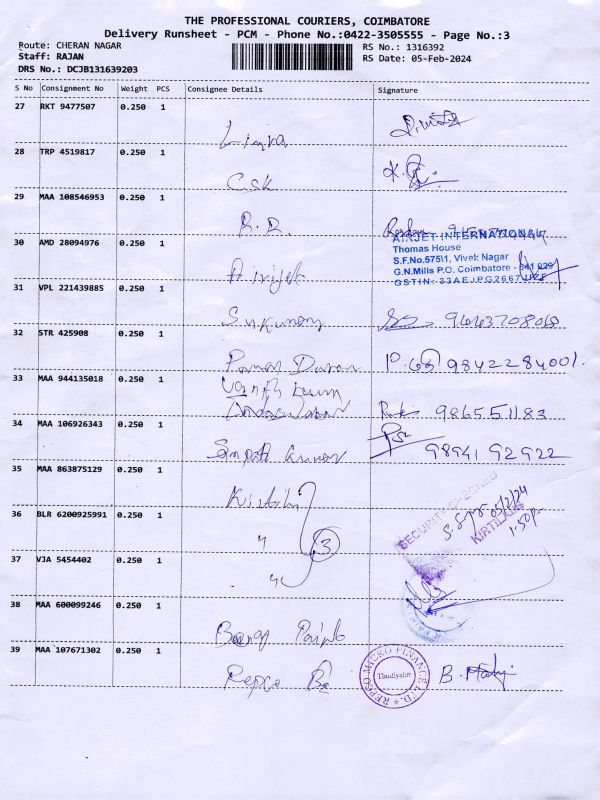 THE PROFESSIONAL COURIERS, COIMBATORE
Delivery Runsheet - PCM - Phone No.:0422-3505555 - Page No.:3
Route: CHERAN NAGAR
RS No.: 1316392
Staff: RAJAN
RS Date: 05-Feb-2024
DRS No.: DCJB131639203
S No Consignment No Weight PCS Consignee Details Signature
27 RKT 9477507 0.250 1
28 TRP 4519817 0.250 1 CSK
29 MAA 108546953 0.250 1 R.R.
30 AMD 28094976 0.250 1
AIRJET INTERNATIONAL
Thomas House
S.F.No.575\1, Vivek Nagar
G.N.Mills P.O. Coimbatore
31 VPL 221439885 0.250 1 Sukumar
32 STR 425908 0.250 1 9842284001.
33 MAA 944135018 0.250 1 9865551183
34 MAA 106926343 0.250 1 98941 92922
35 MAA 863875129 0.250 1
SECURITY CHECKED
KIRTILALS
05/2/24
1.50p
36 BLR 6200925991 0.250 1 〃 3
37 VJA 5454402 0.250 1 〃
38 MAA 600099246 0.250 1
39 MAA 107671302 0.250 1 Repco
REPCO MICRO FINANCE LTD.
Thudiyalur